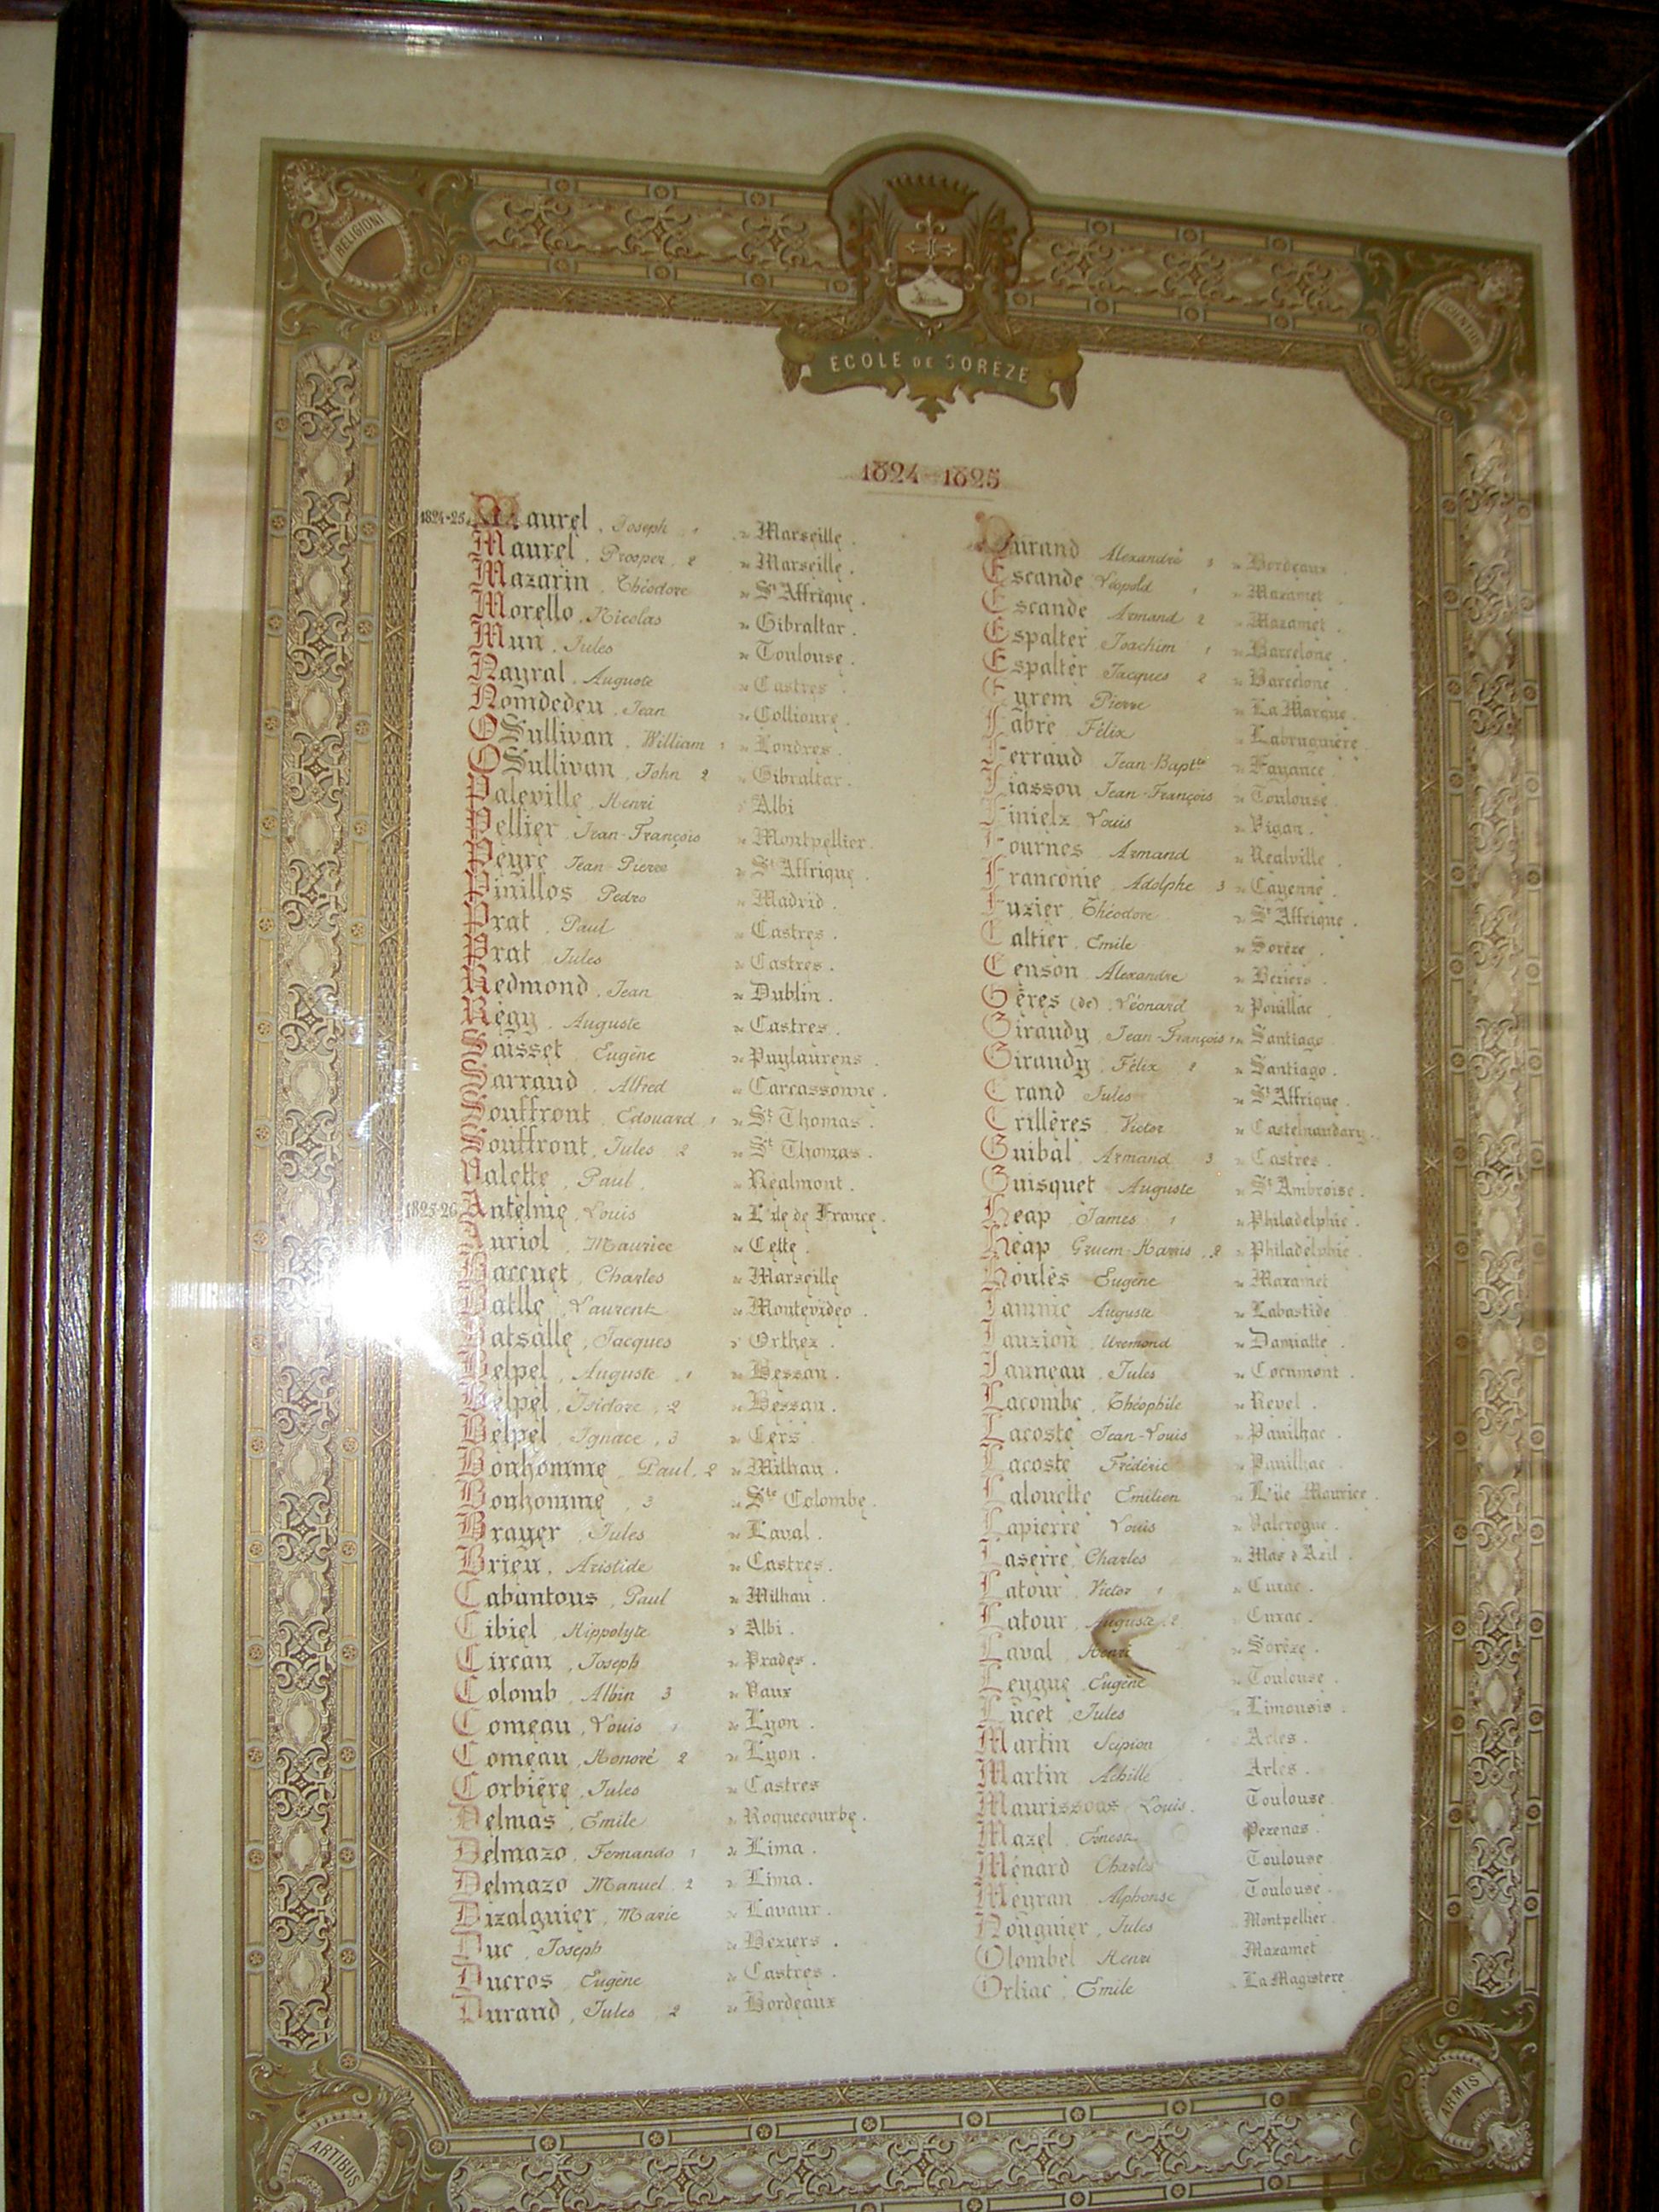 RELIGIONI
ECOLE DE SORÈZE
1824-1825
1824-25 Maurel, Joseph 1 de Marseille.
Maurel, Prosper, 2 de Marseille.
Mazarin, Théodore de St Affrique.
Morello, Nicolas de Gibraltar.
Mun, Jules de Toulouse.
Nayral, Auguste de Castres.
Nomdedeu, Jean de Collioure.
O'Sullivan, William 1 de Londres.
O'Sullivan, John 2 de Gibraltar.
Paleville, Henri d' Albi
Pellier, Jean-François de Montpellier.
Peyre Jean-Pierre de St Affrique.
Pinillos Pedro de Madrid.
Prat, Paul de Castres.
Prat Jules de Castres.
Redmond, Jean de Dublin.
Régy, Auguste de Castres.
Saisset Eugène de Puylaurens.
Sarraud, Alfred de Carcassonne.
Souffront, Edouard, 1 de St Thomas.
Souffront, Jules 2 de St Thomas.
Valette, Paul. de Réalmont.
1825-26 Antelme, Louis de L'île de France.
Auriol, Maurice de Cette.
Baccuet, Charles de Marseille
Batlle, Laurent de Montevideo.
Batsalle, Jacques d' Orthez.
Belpel, Auguste, 1 de Bessan.
Belpel, Isidore, 2 de Bessan.
Belpel, Ignace, 3 de Cers.
Bonhomme, Paul, 2 de Milhau.
Bonhomme, 3 de Ste Colombe.
Brayer, Jules de Laval.
Brieu, Aristide de Castres.
Cabantous, Paul de Milhau.
Cibiel, Hippolyte d' Albi.
Circan, Joseph de Prades.
Colomb, Albin 3 de Vaux
Comeau, Louis 1 de Lyon.
Comeau, Honoré 2 de Lyon.
Corbière, Jules de Castres
Delmas, Emile de Roquecourbe.
Delmazo, Fernando 1 de Lima.
Delmazo, Manuel 2 de Lima.
Dizalguier, Marie de Lavaur.
Duc, Joseph de Béziers.
Ducros, Eugène de Castres.
Durand, Jules, 2 de Bordeaux
Durand Alexandre 3 de Bordeaux
Escande Léopold 1 de Mazamet
Escande Armand 2 de Mazamet.
Espalter Joachim 1 de Barcelone.
Espalter Jacques 2 de Barcelone
Eyrem Pierre de La Marque.
Fabre Félix de Labruguière.
Ferraud Jean-Baptte de Fayance.
Fiassou Jean-François de Toulouse
Finielz Louis de Vigan.
Fournes, Armand de Réalville
Franconie, Adolphe 3 de Cayenne.
Fuzier, Théodore de St Affrique.
Galtier, Emile de Sorèze.
Genson, Alexandre de Béziers.
Gères (de) Léonard de Pouillac
Giraudy, Jean-François 1 de Santiago
Giraudy, Félix 2 de Santiago.
Grand Jules de St Affrique.
Grillères, Victor de Castelnaudary.
Guibal, Armand 3 de Castres.
Guisquet Auguste de St Ambroise.
Heap James 1 de Philadelphie.
Heap Harris, 2 de Philadelphie.
Houlès Eugène de Mazamet
Jammie Auguste de Labastide
Jauzion de Damiatte.
Janneau, Jules de Cocumont.
Lacombe, Théophile de Revel.
Lacoste Jean-Louis de Pauilhac.
Lacoste Frédéric de Pauilhac.
Lalouette Emilien de L'île Maurice.
Lapierre Louis de Valerogue.
Laserre, Charles de Mas d'Azil.
Latour, Victor 1 de Cuxac.
Latour, Auguste, 2 Cuxac.
Laval, Henri de Sorèze.
Leygue, Eugène de Toulouse.
Lucet, Jules de Limousis.
Martin Scipion Arles.
Martin Achille Arles.
Maurissoux Louis. Toulouse
Mazel, Ernest Pezenas.
Ménard Charles Toulouse
Meyran Alphonse Toulouse.
Nouguier, Jules Montpellier
Olombel Henri Mazamet
Orliac, Emile de La Magistere
ARTIBUS
ARMIS